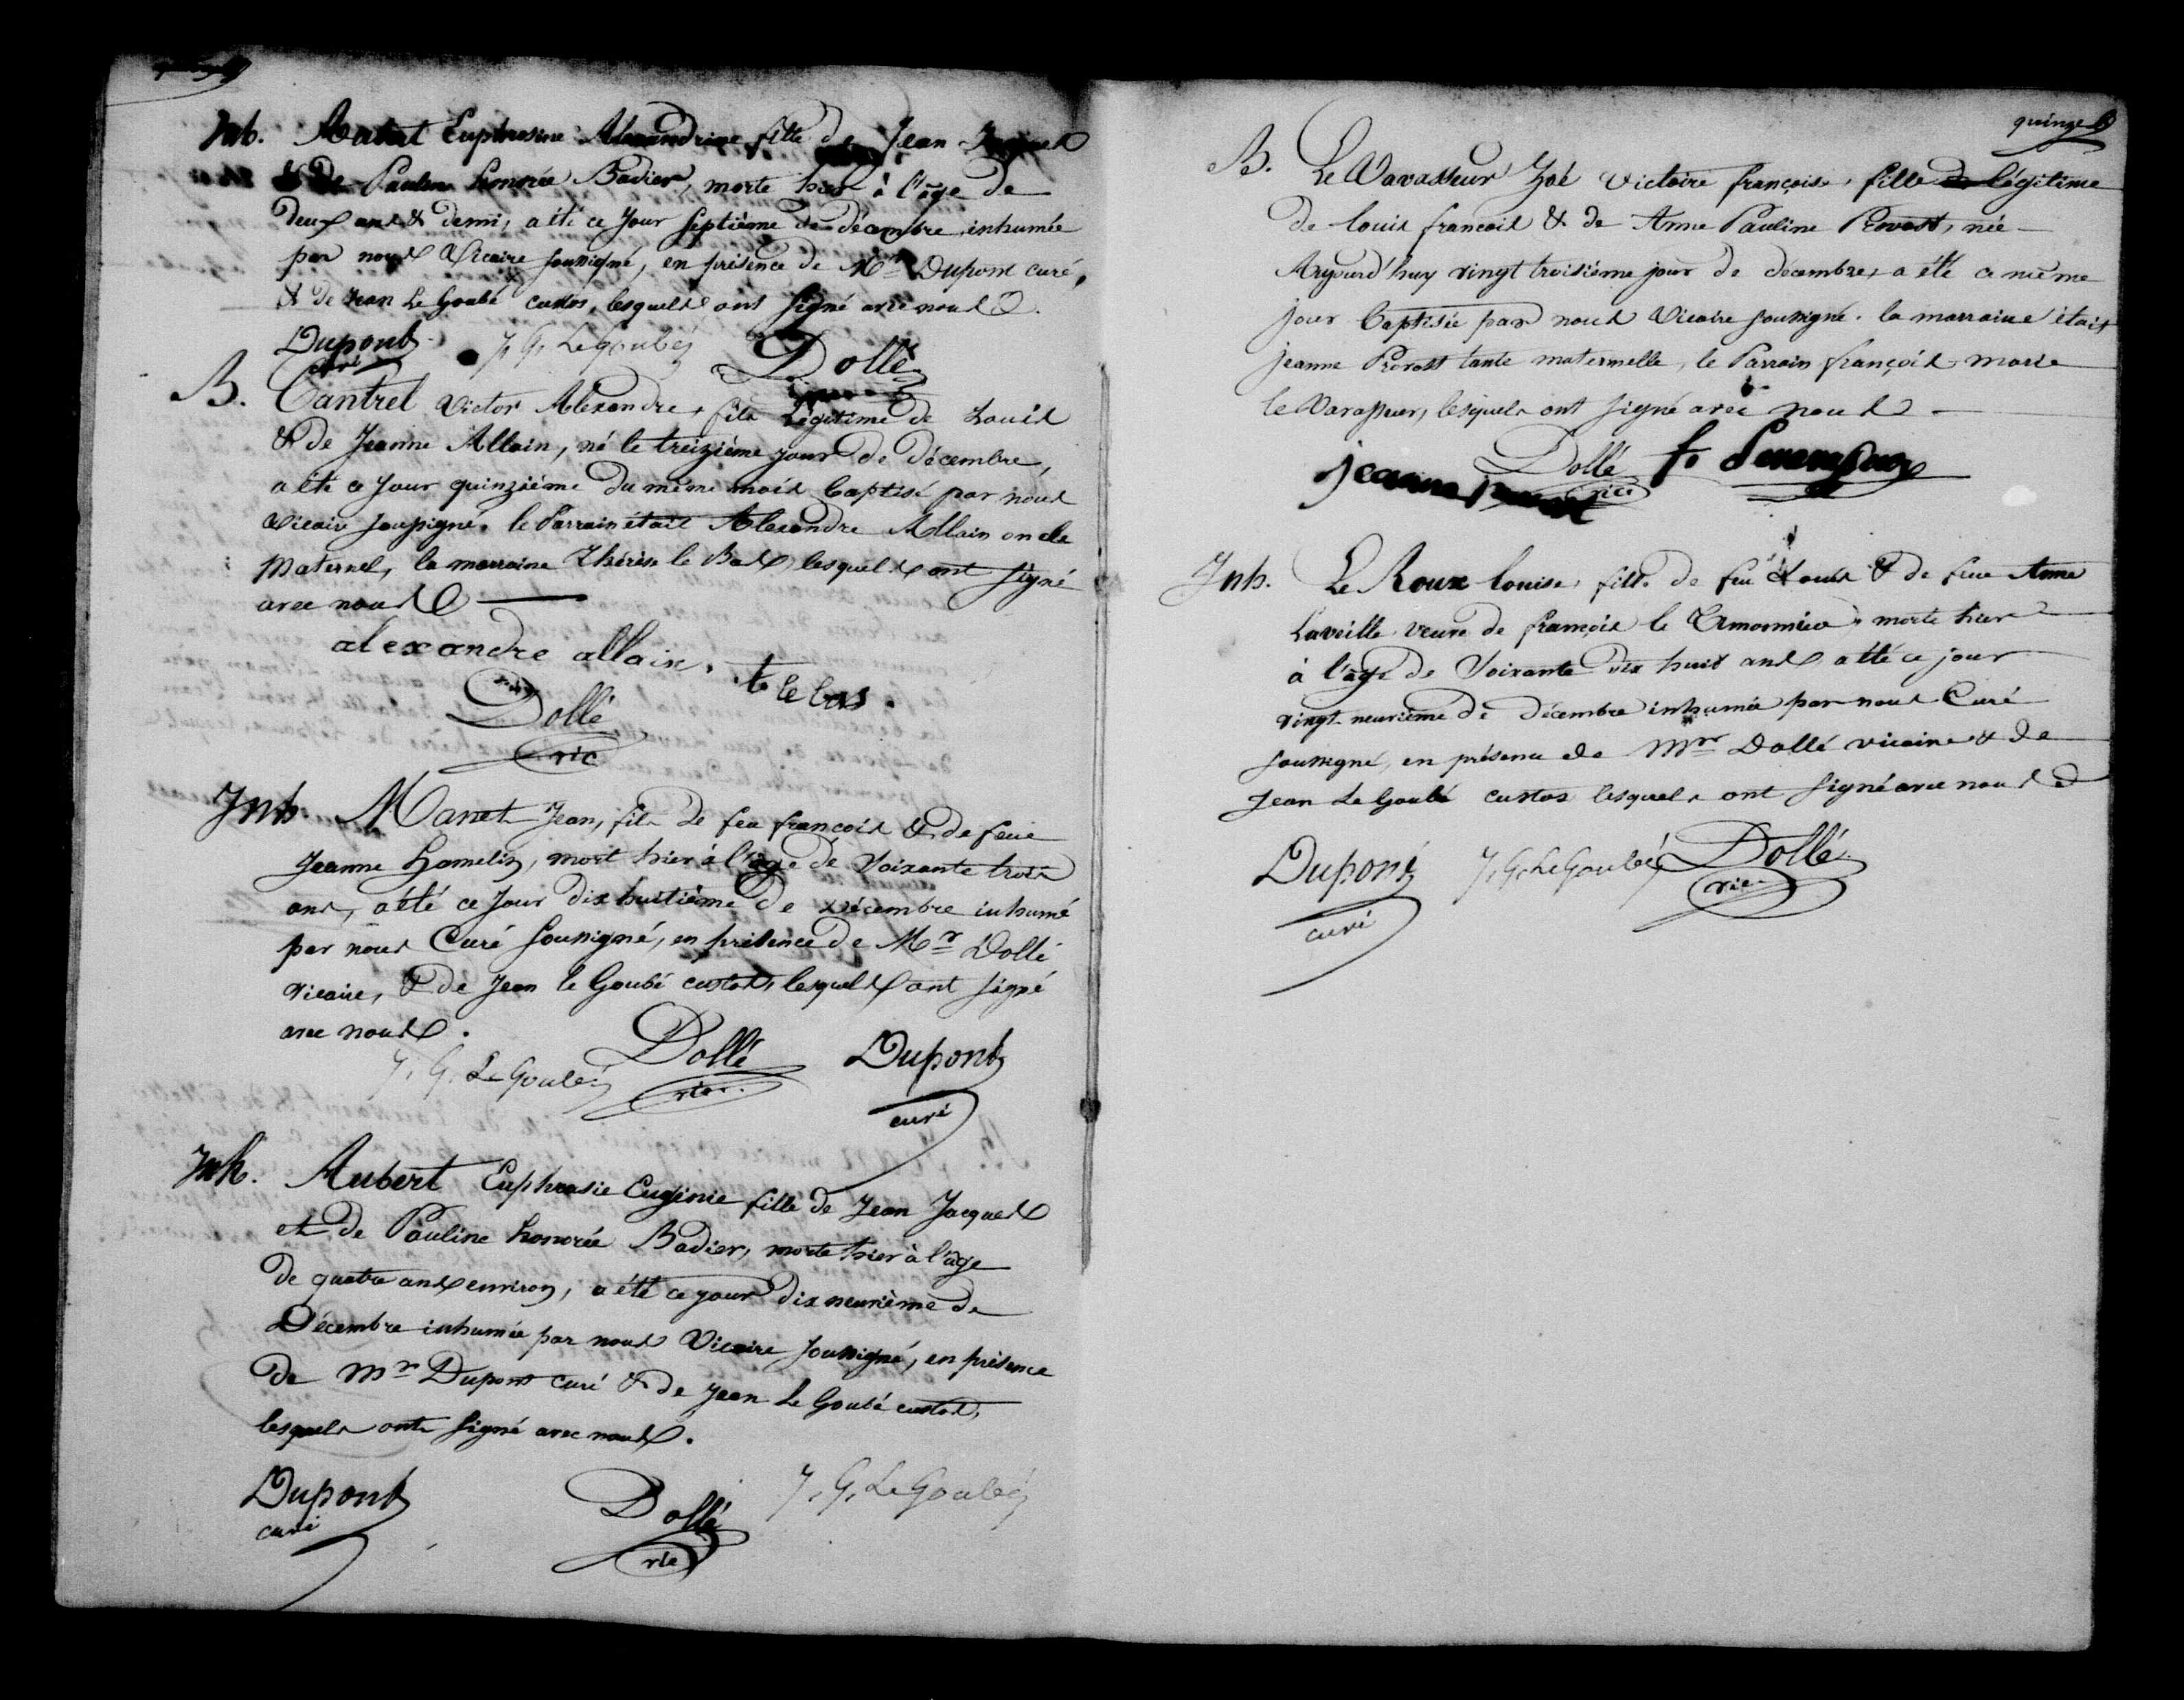 Inh. Aubert Euphrasine Alexandrine fille de Jean Jacques
& de Pauline honorée Badier, morte hier à l'âge de
deux ans & demi, a été ce jour septième de décembre inhumée
par nous Vicaire soussigné, en présence de Mr Dupont curé,
& de Jean Le Goubé custos, lesquels ont signé avec nous
Dupont J. G. Le Goubey Dollé
curé
B. Cantrel Victor Alexandre, fils légitime de Louis
& de Jeanne Allain, né le treizième jour de décembre,
a été ce jour quinzième du même mois baptisé par nous
Vicaire soussigné. le Parrain était Alexandre Allain oncle
Maternel, la marraine Thérèse le Bas lesquels ont signé
avec nous
alexandre allain. t. le bas.
Dollé
vic
Inh. Manet Jean, fils de feu françois & de feue
Jeanne Hamelin, mort hier à l'âge de soixante trois
ans, a été ce jour dix huitième de décembre inhumé
par nous Curé soussigné, en présence de Mr Dollé
vicaire, & de Jean le Goubé custos, lesquels ont signé
avec nous.
J. G. Le Goubey Dollé Dupont
vic. curé
Inh. Aubert Euphrasie Eugénie fille de Jean Jacques
et de Pauline honorée Badier, morte hier à l'âge
de quatre ans environ, a été ce jour dix neuvième de
Décembre inhumée par nous Vicaire soussigné, en présence
de Mr Dupont curé & de Jean Le Goubé custos,
lesquels ont signé avec nous.
Dupont Dollé J. G. Le Goubey
curé vic
quinze
B. Le Vavasseur Zoé Victoire françoise, fille légitime
de louis françois & de Anne Pauline Provost, née
Aujourd'huy vingt troisième jour de décembre, a été ce même
jour baptisée par nous Vicaire soussigné. la marraine était
jeanne Provost tante maternelle, le Parrain françois marie
le Vavasseur, lesquels ont signé avec nous
jeanne Dollé f.
vic
Inh. Le Roux louise, fille de feu Louis & de feue Anne
Laveille veuve de françois le morte hier
à l'âge de soixante dix huit ans a été ce jour
vingt neuvième de décembre inhumée par nous Curé
soussigné, en présence de Mr Dollé vicaire & de
Jean Le Goubé custos lesquels ont signé avec nous
Dupont J. G. Le Goubey Dollé
curé vic